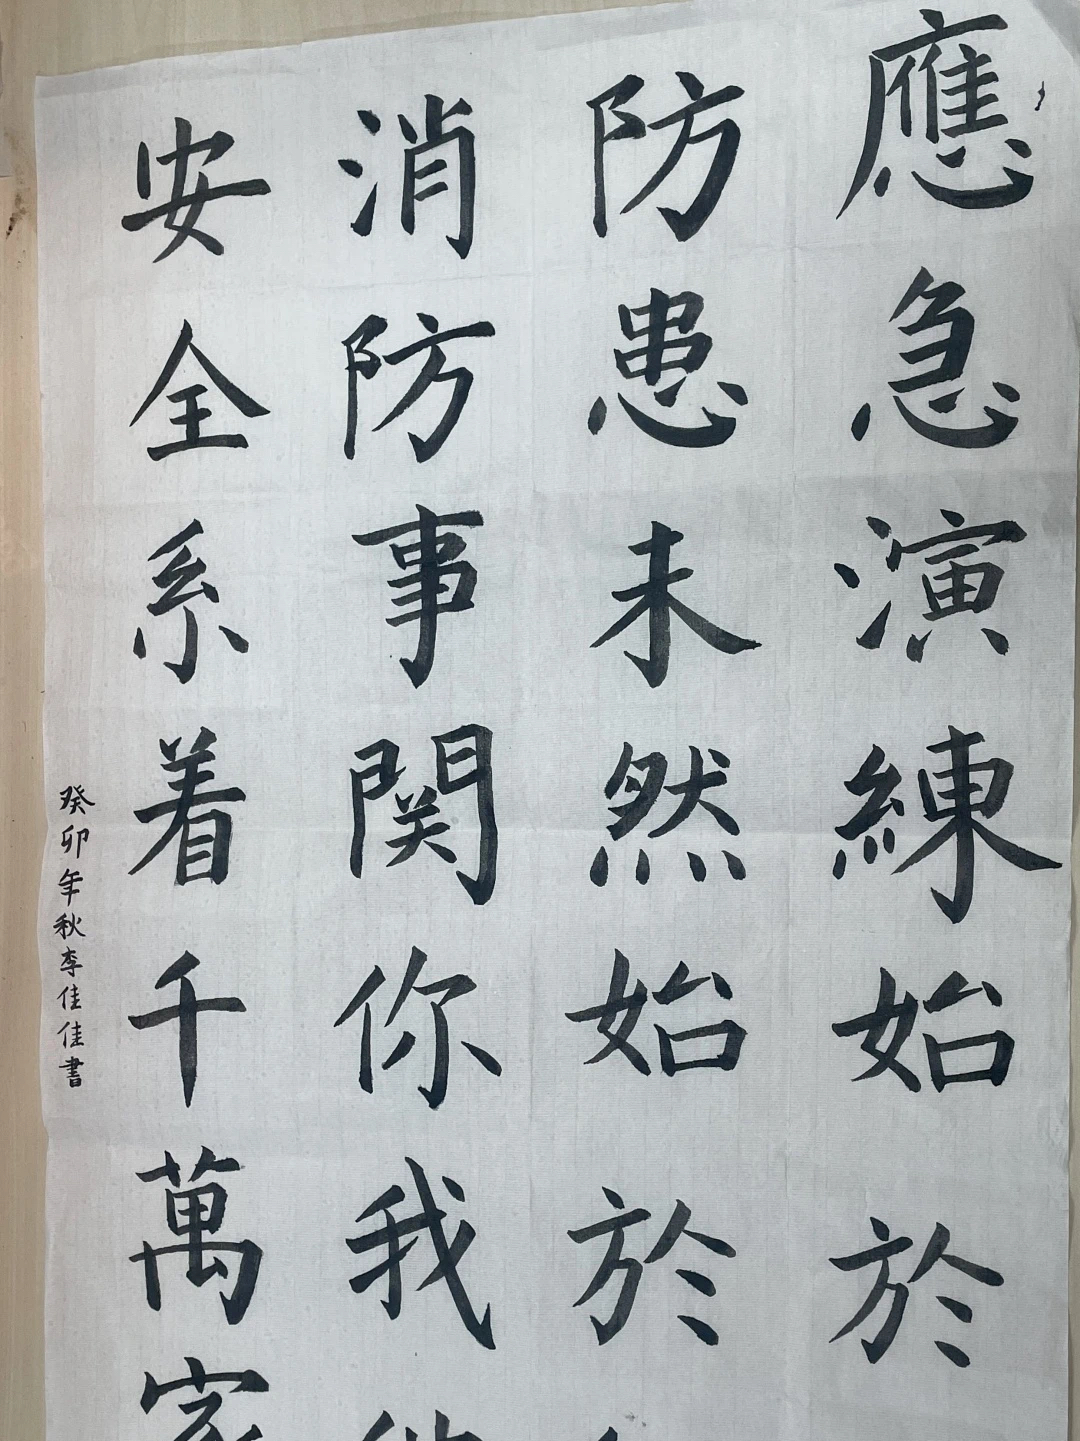 應急演練始於
防患未然始於
消防事関你我
安全系着千萬家
癸卯年秋李佳佳書